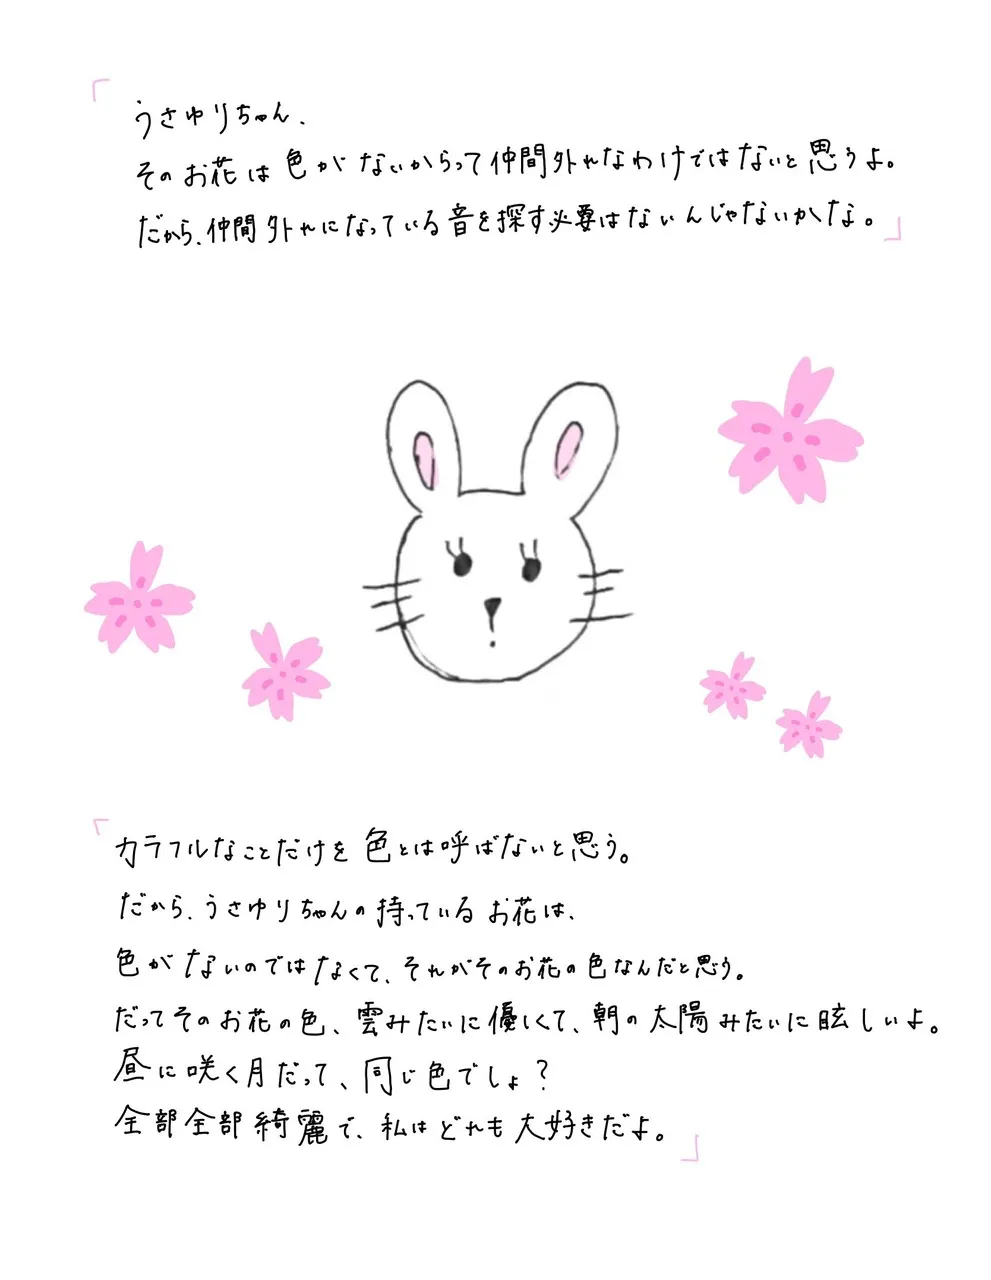 「
うさゆりちゃん、
そのお花は色がないからって仲間外れなわけではないと思うよ。
だから、仲間外れになっている音を探す必要はないんじゃないかな。」
「
カラフルなことだけを色とは呼ばないと思う。
だから、うさゆりちゃんの持っているお花は、
色がないのではなくて、それがそのお花の色なんだと思う。
だってそのお花の色、雲みたいに優しくて、朝の太陽みたいに眩しいよ。
昼に咲く月だって、同じ色でしょ？
全部全部綺麗で、私はどれも大好きだよ。
」